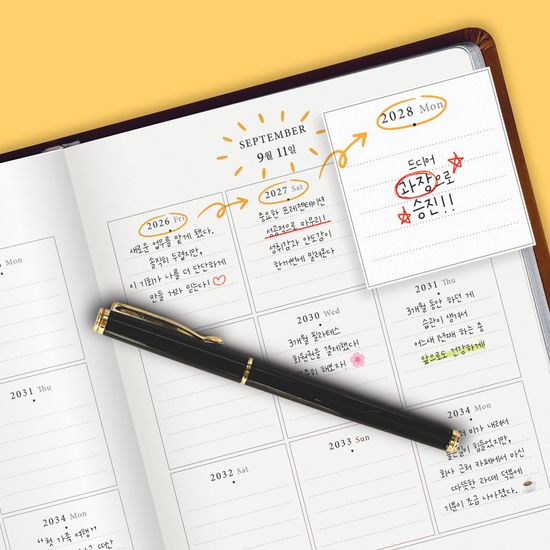 SEPTEMBER
9월 11일
2026 Fri
새로운 업무를 맡게 됐다.
솔직히 두렵지만,
이 기회가 나를 더 단단하게
만들 거라 믿는다!
2027 Sat
중요한 프레젠테이션
성공적으로 마무리!!
성취감과 안도감이
한꺼번에 밀려온다
2028 Mon
드디어
과장으로
승진!!
Mon
2030 Wed
3개월 필라테스
회원권을 결제했다!
해보자!
2031 Thu
3개월 동안 하던 게
습관이 생겨서
어느새 1년째 하는 중
앞으로도 건강하게!
2031 Thu
2032 Sat
2033 Sun
2034 Mon
비가 내려서
힘들었지만,
회사 근처 카페에서 마신
따뜻한 라떼 덕분에
기분이 조금 나아졌다.
2034 Mon
"첫 가족 여행"